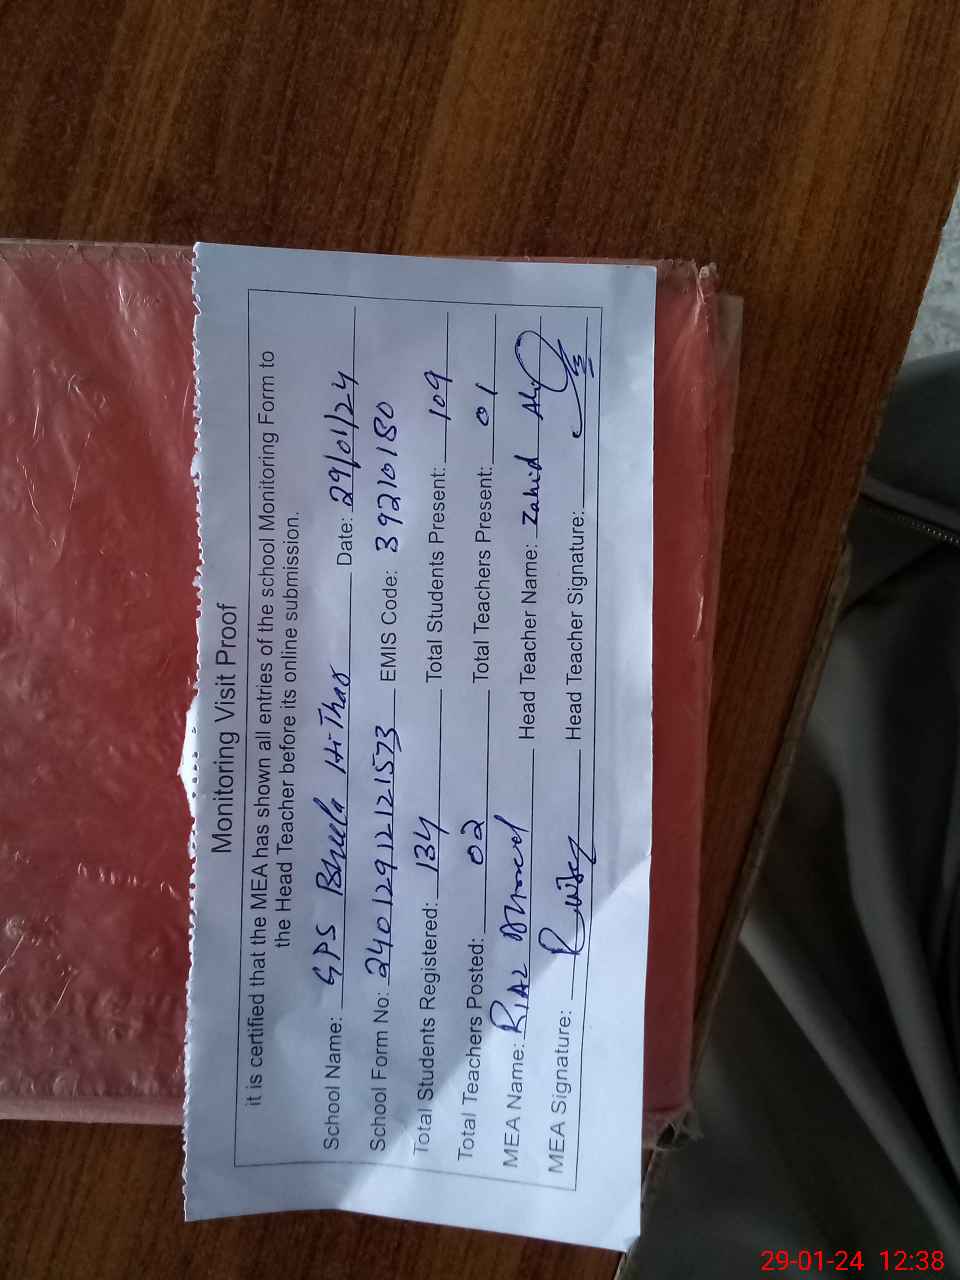 Monitoring Visit Proof
it is certified that the MEA has shown all entries of the school Monitoring Form to
the Head Teacher before its online submission.
School Name: GPS Bheela Hithar Date: 29/01/24
School Form No: 240129112121573 EMIS Code: 39210180
Total Students Registered: 134 Total Students Present: 109
Total Teachers Posted: 02 Total Teachers Present: 01
MEA Name: RIAZ Ahmed Head Teacher Name: Zahid Ali
MEA Signature: Head Teacher Signature:
29-01-24 12:38